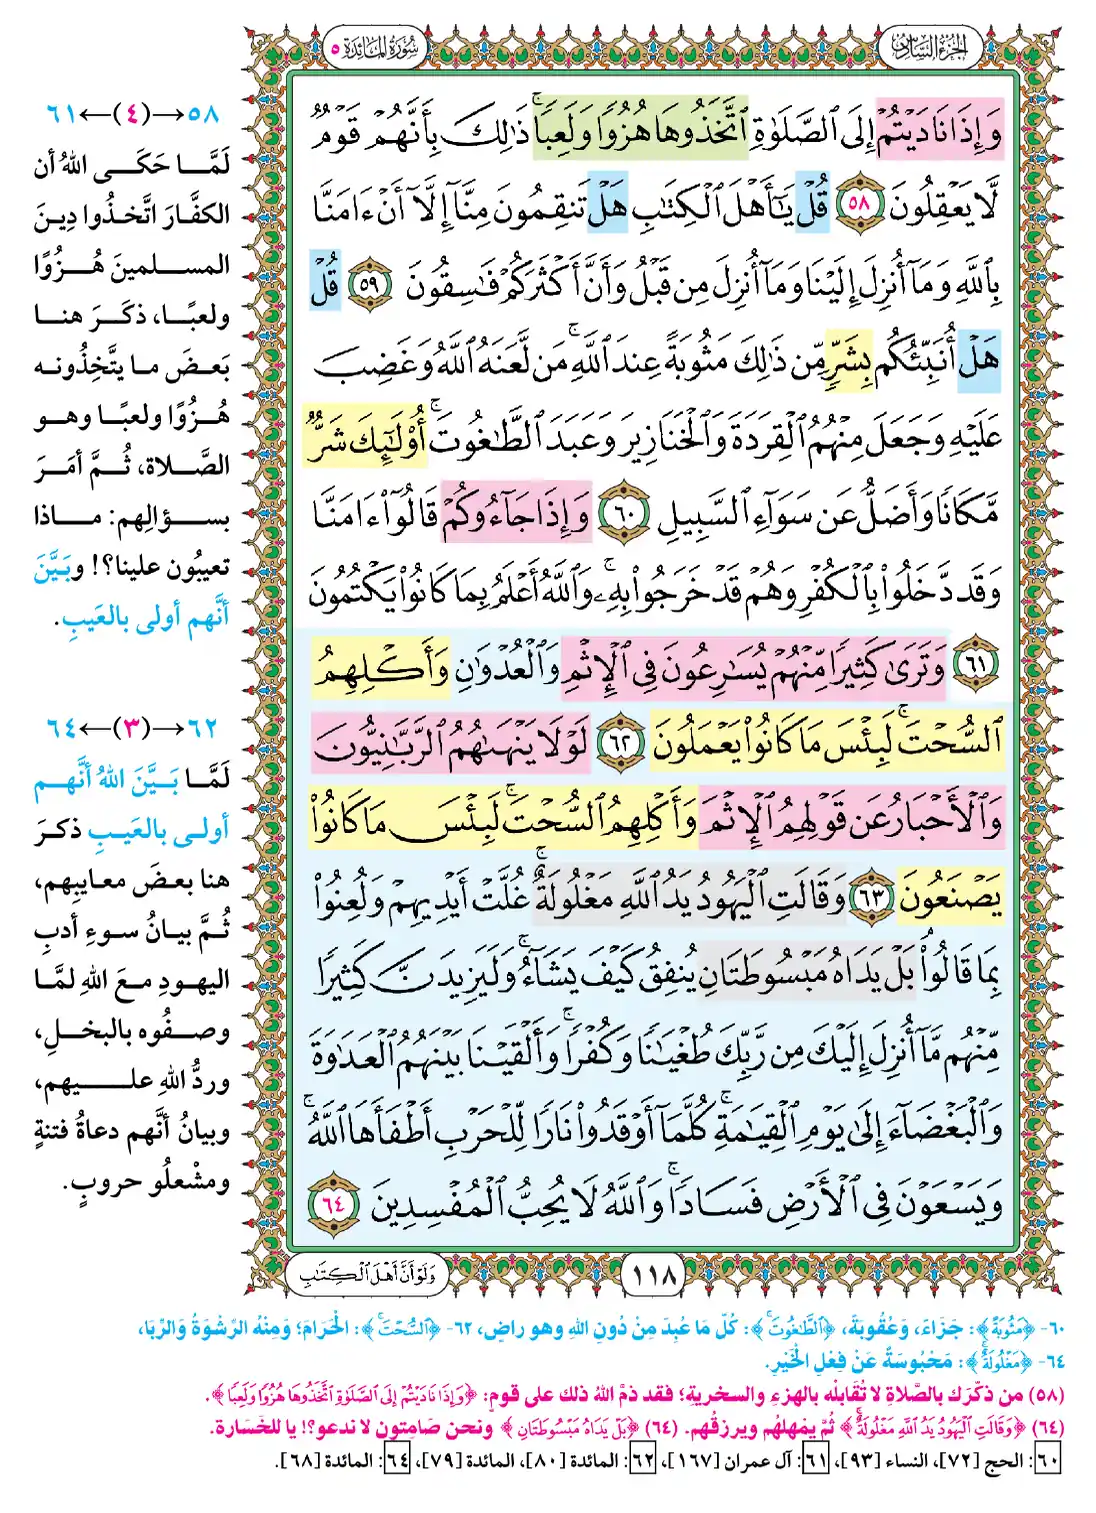 الجزء السادس
سورة المائدة ٥
وَإِذَا نَادَيْتُمْ إِلَى ٱلصَّلَوٰةِ ٱتَّخَذُوهَا هُزُوًا وَلَعِبًا ۚ ذَٰلِكَ بِأَنَّهُمْ قَوْمٌ
لَّا يَعْقِلُونَ ٥٨ قُلْ يَـٰٓأَهْلَ ٱلْكِتَـٰبِ هَلْ تَنقِمُونَ مِنَّآ إِلَّآ أَنْ ءَامَنَّا
بِٱللَّهِ وَمَآ أُنزِلَ إِلَيْنَا وَمَآ أُنزِلَ مِن قَبْلُ وَأَنَّ أَكْثَرَكُمْ فَـٰسِقُونَ ٥٩ قُلْ
هَلْ أُنَبِّئُكُم بِشَرٍّ مِّن ذَٰلِكَ مَثُوبَةً عِندَ ٱللَّهِ ۚ مَن لَّعَنَهُ ٱللَّهُ وَغَضِبَ
عَلَيْهِ وَجَعَلَ مِنْهُمُ ٱلْقِرَدَةَ وَٱلْخَنَازِيرَ وَعَبَدَ ٱلطَّـٰغُوتَ ۚ أُو۟لَـٰٓئِكَ شَرٌّ
مَّكَانًا وَأَضَلُّ عَن سَوَآءِ ٱلسَّبِيلِ ٦٠ وَإِذَا جَآءُوكُمْ قَالُوٓا۟ ءَامَنَّا
وَقَد دَّخَلُوا۟ بِٱلْكُفْرِ وَهُمْ قَدْ خَرَجُوا۟ بِهِۦ ۚ وَٱللَّهُ أَعْلَمُ بِمَا كَانُوا۟ يَكْتُمُونَ
٦١ وَتَرَىٰ كَثِيرًا مِّنْهُمْ يُسَـٰرِعُونَ فِى ٱلْإِثْمِ وَٱلْعُدْوَٰنِ وَأَكْلِهِمُ
ٱلسُّحْتَ ۚ لَبِئْسَ مَا كَانُوا۟ يَعْمَلُونَ ٦٢ لَوْلَا يَنْهَىٰهُمُ ٱلرَّبَّـٰنِيُّونَ
وَٱلْأَحْبَارُ عَن قَوْلِهِمُ ٱلْإِثْمَ وَأَكْلِهِمُ ٱلسُّحْتَ ۚ لَبِئْسَ مَا كَانُوا۟
يَصْنَعُونَ ٦٣ وَقَالَتِ ٱلْيَهُودُ يَدُ ٱللَّهِ مَغْلُولَةٌ ۚ غُلَّتْ أَيْدِيهِمْ وَلُعِنُوا۟
بِمَا قَالُوا۟ ۘ بَلْ يَدَاهُ مَبْسُوطَتَانِ يُنفِقُ كَيْفَ يَشَآءُ ۚ وَلَيَزِيدَنَّ كَثِيرًا
مِّنْهُم مَّآ أُنزِلَ إِلَيْكَ مِن رَّبِّكَ طُغْيَـٰنًا وَكُفْرًا ۚ وَأَلْقَيْنَا بَيْنَهُمُ ٱلْعَدَٰوَةَ
وَٱلْبَغْضَآءَ إِلَىٰ يَوْمِ ٱلْقِيَـٰمَةِ ۚ كُلَّمَآ أَوْقَدُوا۟ نَارًا لِّلْحَرْبِ أَطْفَأَهَا ٱللَّهُ ۚ
وَيَسْعَوْنَ فِى ٱلْأَرْضِ فَسَادًا ۚ وَٱللَّهُ لَا يُحِبُّ ٱلْمُفْسِدِينَ ٦٤
١١٨
وَلَوْ أَنَّ أَهْلَ ٱلْكِتَـٰبِ
٥٨→(٤)←٦١
لَمَّا حَكَى اللهُ أن
الكفَّارَ اتَّخذُوا دِينَ
المسلمينَ هُزُوًا
ولعبًا، ذكَرَ هنا
بَعضَ ما يتَّخِذُونه
هُزُوًا ولعبًا وهو
الصَّلاة، ثُمَّ أمَرَ
بسؤالِهم: ماذا
تعيبُون علينا؟! وبَيَّنَ
أنَّهم أولى بالعَيبِ.
٦٢→(٣)←٦٤
لَمَّا بَيَّنَ اللهُ أنَّهم
أولى بالعَيبِ ذكرَ
هنا بعضَ معايبِهم،
ثُمَّ بيانُ سوءِ أدبِ
اليهودِ معَ اللهِ لمَّا
وصفُوه بالبخلِ،
وردُّ اللهِ عليهم،
وبيانُ أنَّهم دعاةُ فتنةٍ
ومشْعلُو حروبٍ.
٦٠- ﴿مَثُوبَةً﴾: جَزَاءً، وَعُقُوبَةً، ﴿ٱلطَّـٰغُوتَ ۚ﴾: كُلّ مَا عُبِدَ مِنْ دُونِ اللهِ وهو راضٍ، ٦٢- ﴿ٱلسُّحْتَ ۚ﴾: الْحَرَامَ؛ وَمِنْهُ الرِّشْوَةُ وَالرِّبَا،
٦٤- ﴿مَغْلُولَةٌ ۚ﴾: مَحْبُوسَةٌ عَنْ فِعْلِ الْخَيْرِ.
(٥٨) من ذكَّرَك بالصَّلاةِ لا تُقابلْه بالهزءِ والسخريةِ؛ فقد ذمَّ اللهُ ذلك على قومٍ: ﴿وَإِذَا نَادَيْتُمْ إِلَى ٱلصَّلَوٰةِ ٱتَّخَذُوهَا هُزُوًا وَلَعِبًا﴾.
(٦٤) ﴿وَقَالَتِ ٱلْيَهُودُ يَدُ ٱللَّهِ مَغْلُولَةٌ ۚ﴾ ثُمَّ يمْهلهُم ويرزقُهم. (٦٤) ﴿بَلْ يَدَاهُ مَبْسُوطَتَانِ﴾ ونحن صَامِتون لا ندعو؟! يا للخَسَارة.
٦٠: الحج [٧٢]، النساء [٩٣]، ٦١: آل عمران [١٦٧]، ٦٢: المائدة [٨٠]، المائدة [٧٩]، ٦٤: المائدة [٦٨].